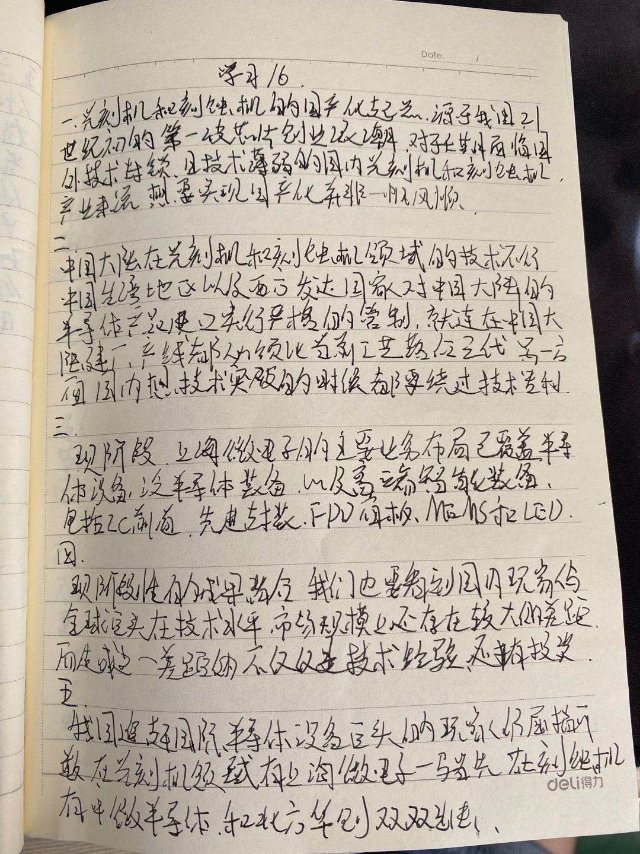 Date.
学习16.
一.光刻机和刻蚀机的国产化起点.源于我国21
世纪初的第一波芯片创业浪潮 对于其面临国
外技术封锁.且技术薄弱的国内光刻机和刻蚀机
产业来说 想要实现国产化并非一帆风顺.
二.
中国大陆在光刻机和刻蚀机领域的技术不行
中国台湾地区以及西方发达国家对中国大陆的
半导体产品更是实行严格的管制,就连在中国大
陆建厂,产线都必须比当前工艺落后三代 另一方
面国内想技术突破的时候都要绕过技术专利
三.
现阶段 上海微电子的主要业务布局已覆盖半导
体设备.泛半导体装备,以及高端智能化装备,
包括IC前道.先进封装.FPD面板.MEMS和LED.
四.
现阶段性的成果背后 我们也要看到国内玩家与
全球巨头在技术水平.市场规模上还存在较大的差距
而造成这一差距的不仅仅是技术经验,还有投资.
五.
我国追赶国际半导体设备巨头的玩家仍屈指可
数 在光刻机领域有上海微电子一马当先 在刻蚀机
有中微半导体.和北方华创双双
deli得力